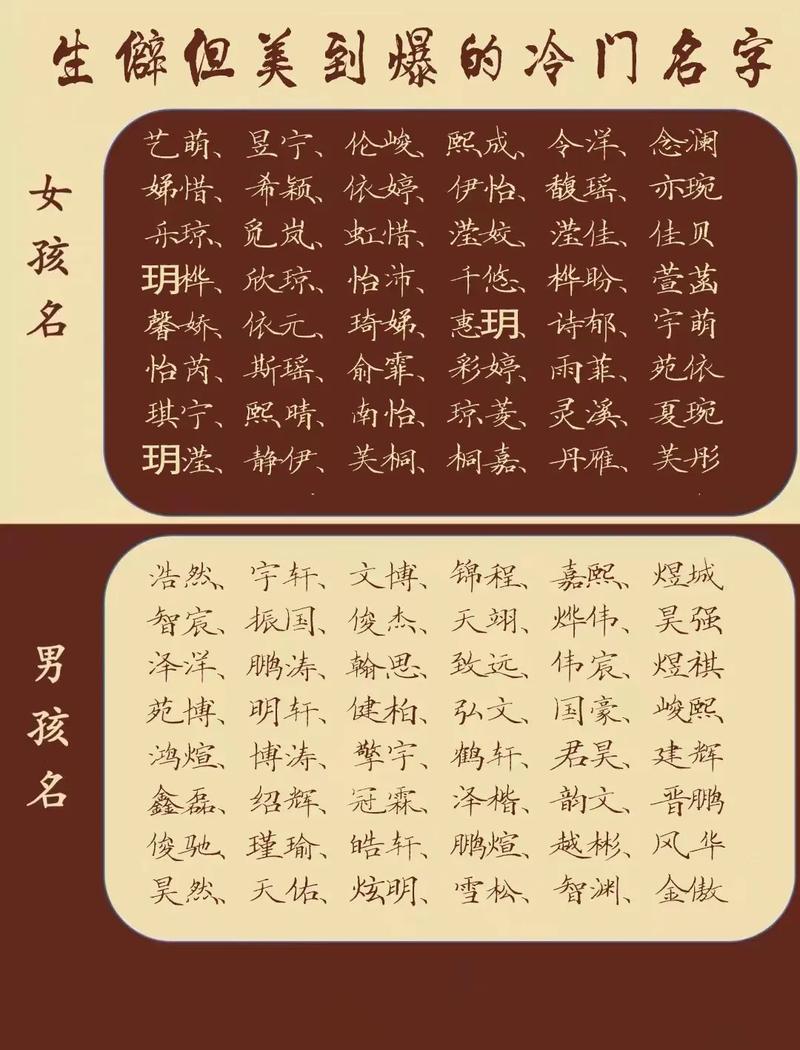 生僻但美到爆的冷门名字
女孩名
艺萌、昱宁、伦峻、熙成、令洋、念澜
娣惜、希颖、依婷、伊怡、馥瑶、亦琬
乐琼、觅岚、虹惜、滢姣、滢佳、佳贝
玥桦、欣琼、怡沛、千悠、桦盼、萱菡
馨娇、依元、琦娣、惠玥、诗郁、宇萌
怡芮、斯瑶、俞霏、彩婷、雨菲、苑依
琪宁、熙晴、南怡、琼菱、灵溪、夏琬
玥滢、静伊、芙桐、桐嘉、丹雁、芙彤
男孩名
浩然、宇轩、文博、锦程、嘉熙、煜城
智宸、振国、俊杰、天翊、烨伟、昊强
泽洋、鹏涛、翰思、致远、伟宸、煜祺
苑博、明轩、健柏、弘文、国豪、峻熙
鸿煊、博涛、擎宇、鹤轩、君昊、建辉
鑫磊、绍辉、冠霖、泽楷、韵文、晋鹏
俊驰、瑾瑜、皓轩、鹏煊、越彬、风华
昊然、天佑、炫明、雪松、智渊、金傲